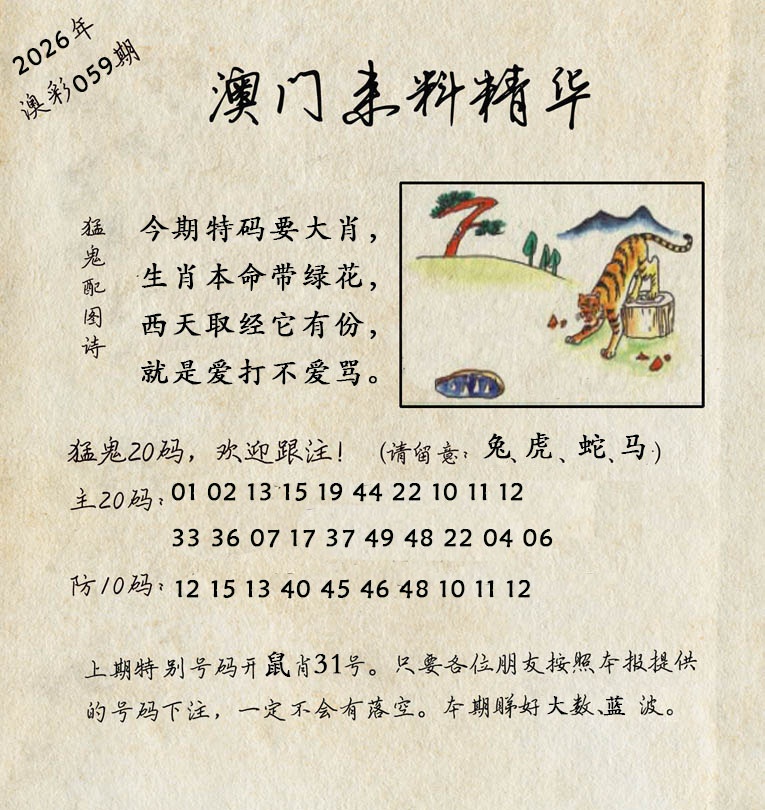 2026年
澳彩059期
澳门来料精华
猛鬼配图诗
今期特码要大肖，
生肖本命带绿花，
西天取经它有份，
就是爱打不爱骂。
猛鬼20码，欢迎跟注！（请留意：兔、虎、蛇、马）
主20码：01 02 13 15 19 44 22 10 11 12
33 36 07 17 37 49 48 22 04 06
防10码：12 15 13 40 45 46 48 10 11 12
上期特别号码开鼠肖31号。只要各位朋友按照本报提供
的号码下注，一定不会有落空。本期睇好大数、蓝 波。